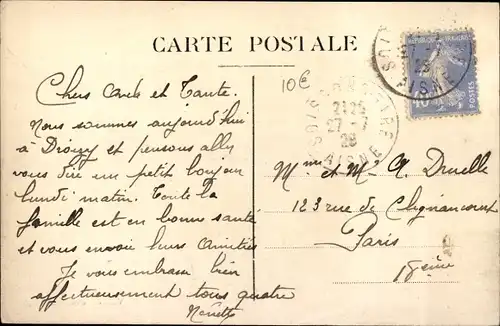 CARTE POSTALE
10€
Chers Oncle et Tante.
Nous sommes aujourd'hui
à Drouzy et pensons aller
vous dire un petit bonjour
lundi matin. Toute la
famille est en bonne santé
et vous envoie leurs amitiés
Je vous embrasse bien
affectueusement tous quatre
Mme et Mr A. Druelle
123 rue de Clignancourt
Paris
18ème
SOIS GARE
21 25
27 - 7
28
AISNE
SOIS
28
AISNE
POSTES